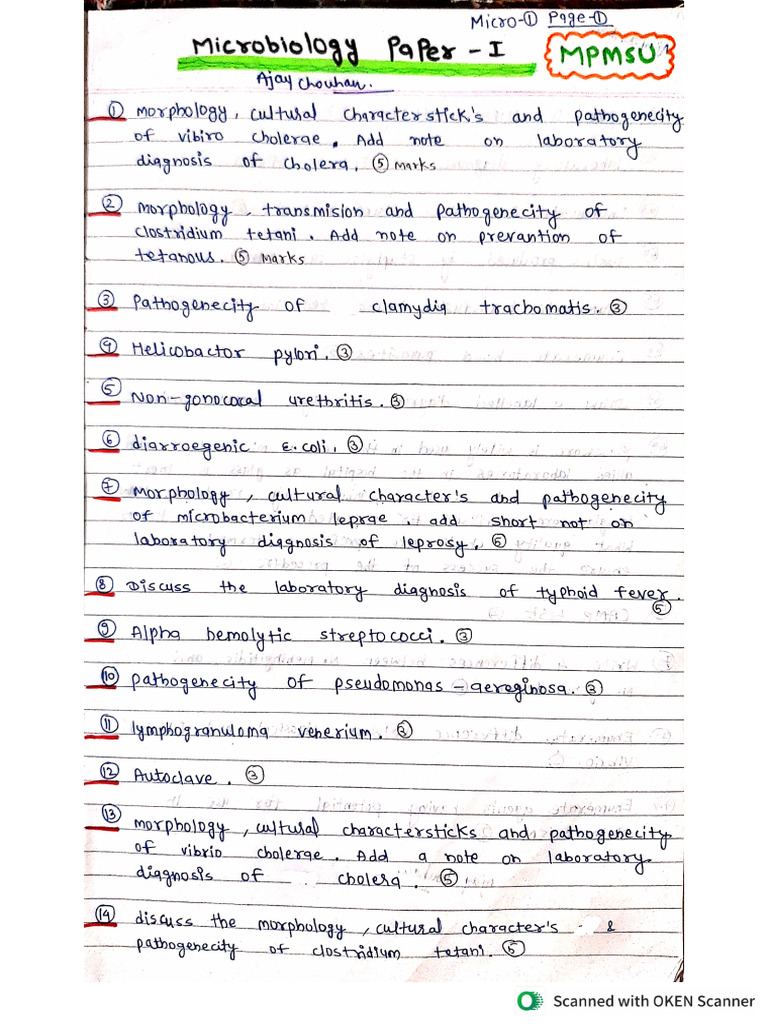 Micro-① Page-①
Microbiology Paper - I MPMSU
Ajay Chouhan.
① morphology, cultural characterstick's and pathogenecity
of vibiro cholerae. Add note on laboratory
diagnosis of cholera. ⑤ marks
② morphology, transmision and pathogenecity of
clostridium tetani. Add note on prevantion of
tetanous. ⑤ marks
③ Pathogenecity of clamydia trachomatis. ③
④ Helicobactor pylori. ③
⑤ Non-gonococal urethritis. ③
⑥ diarroegenic E. coli. ③
⑦ morphology, cultural character's and pathogenecity
of microbacterium leprae. add short not on
laboratory diagnosis of leprosy. ⑤
⑧ Discuss the laboratory diagnosis of typhoid fever.
⑤
⑨ Alpha hemolytic streptococci. ③
⑩ pathogenecity of pseudomonas - aereginosa. ③
⑪ lymphogranuloma venerium. ③
⑫ Autoclave. ③
⑬ morphology, cultural charactersticks and pathogenecity
of vibrio cholerae. Add a note on laboratory
diagnosis of cholera. ⑤
⑭ discuss the morphology, cultural character's &
pathogenecity of clostridium tetani. ⑤
Scanned with OKEN Scanner